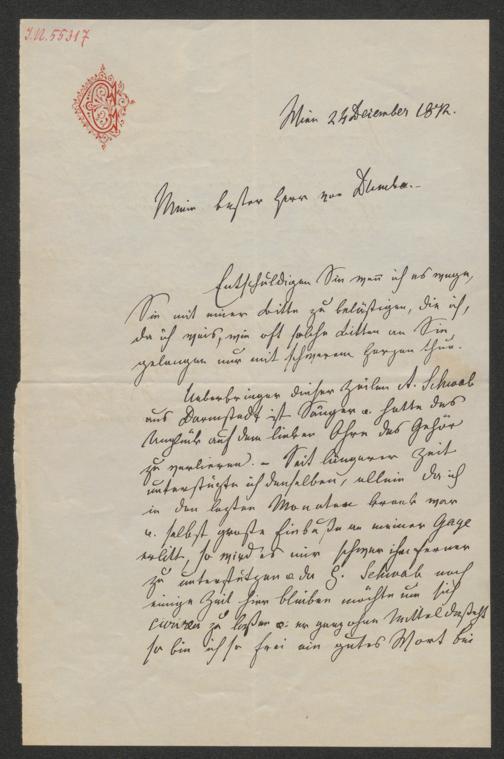 I.N. 55317
Wien 24 Dezember 1872.
Mein bester Herr von Dumba.
Entschuldigen Sie weñ ich es wage,
Sie mit einer Bitte zu belästigen, die ich,
da ich weis, wie oft solche Bitten an Sie
gelangen nur mit schwerem Herzen thue.
Ueberbringer dieser Zeilen A. Schwab
aus Darmstadt ist Sänger u. hatte das
Unglück auf dem linken Ohre das Gehör
zu verlieren. – Seit längerer Zeit
unterstützte ich denselben, allein da ich
in den letzten Monaten krank war
u. selbst große Einbuße an meiner Gage
erlitt, so wird es mir schwer ihn ferner
zu unterstützen u. da H. Schwab noch
einige Zeit hier bleiben möchte um sich
curiren zu laßen u. er ganz ohne Mittel dasteht
so bin ich so frei ein gutes Wort bei